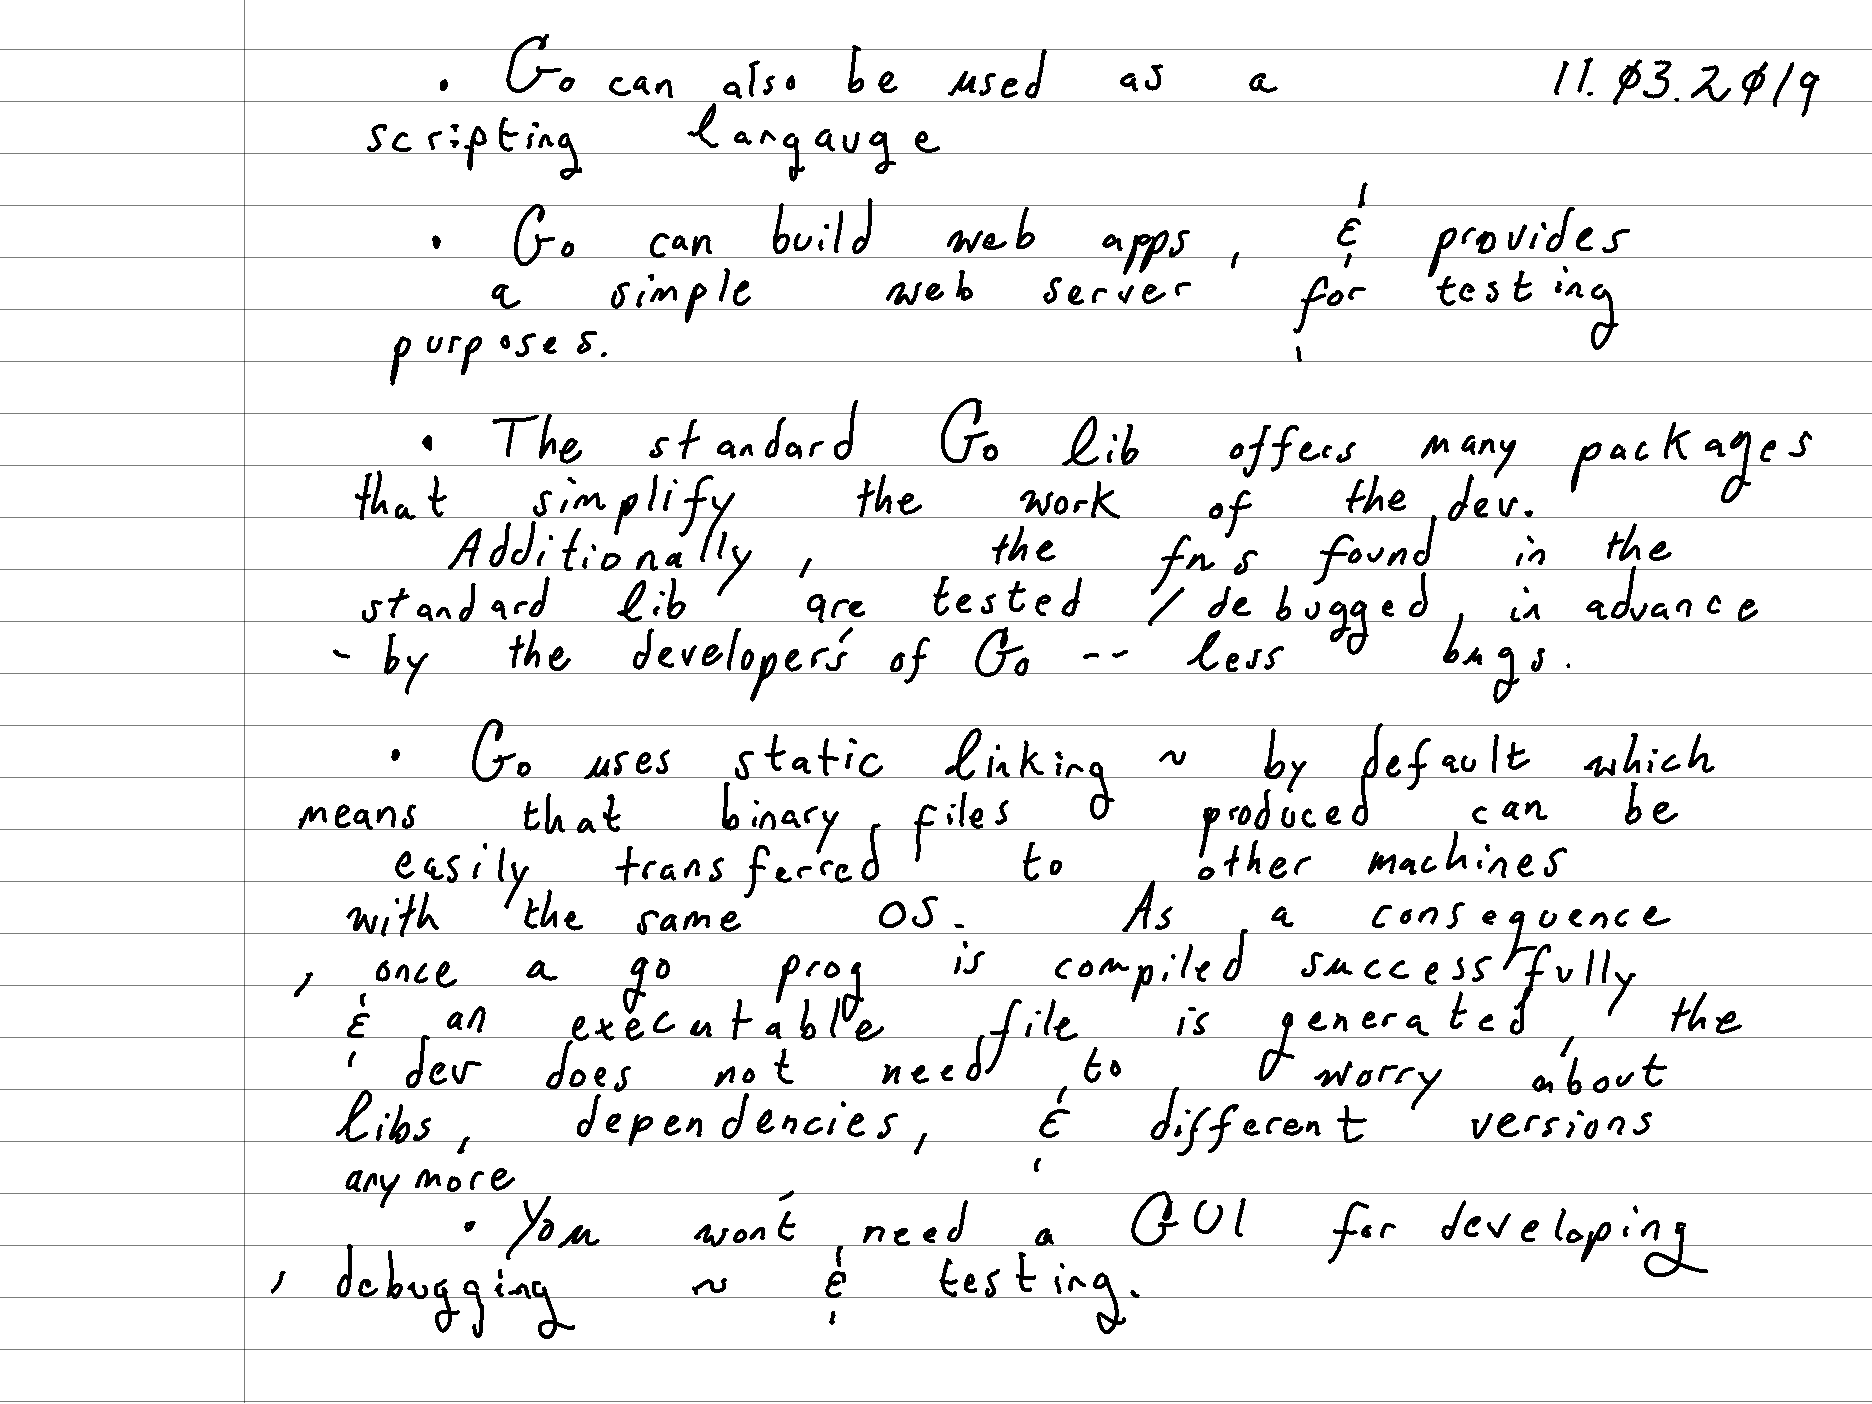 • Go can also be used as a 11.03.2019
scripting langauge
• Go can build web apps, & provides
a simple web server for testing
purposes.
• The standard Go lib offers many packages
that simplify the work of the dev.
Additionally, the fns found in the
standard lib are tested / debugged in advance
- by the developers of Go -- less bugs.
• Go uses static linking ~ by default which
means that binary files produced can be
easily transferred to other machines
with the same OS. As a consequence
, once a go prog is compiled successfully
& an executable file is generated, the
dev does not need to worry about
libs, dependencies, & different versions
anymore
• You won't need a GUI for developing
, debugging ~ & testing.